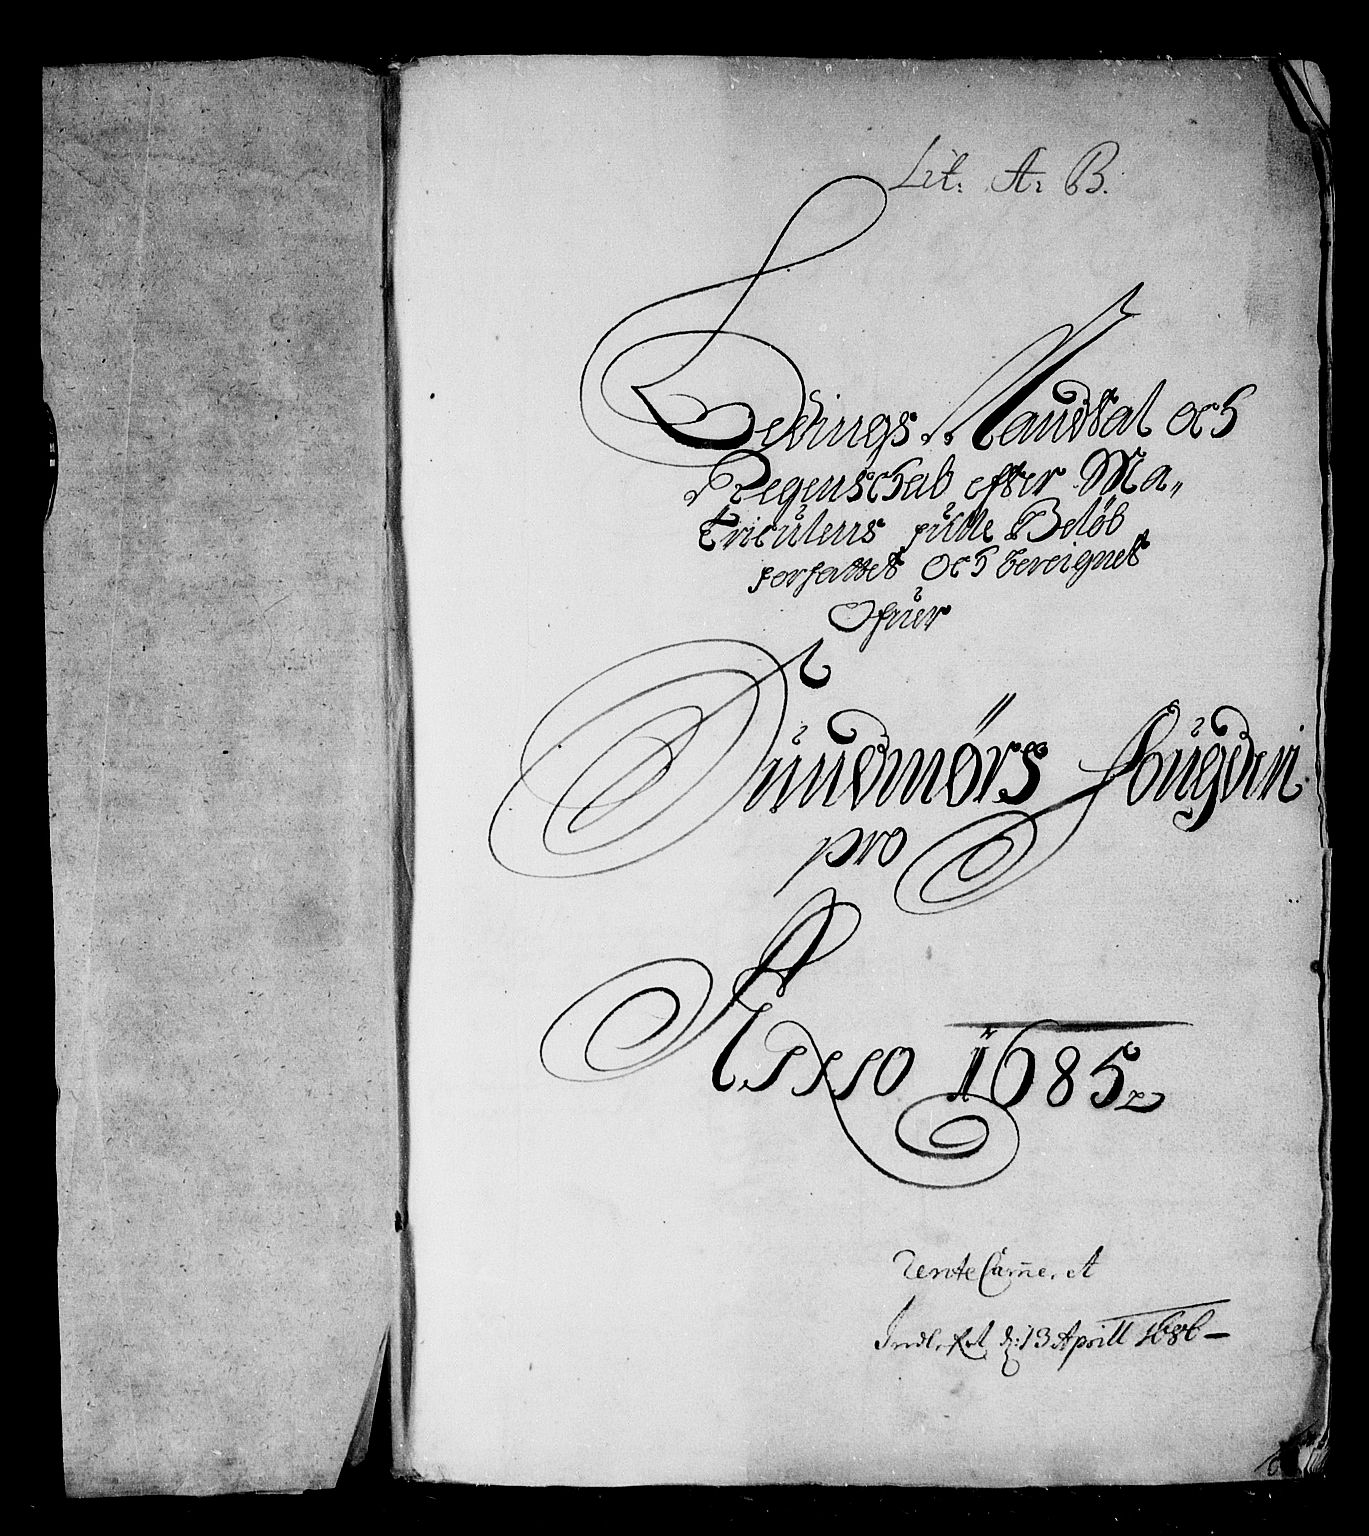 Lit: A: B:
Ledings Mandtal och
Regenschab efter Ma„
triculens fulde Beløb
forfattet och bereignet
Ofuer
Sundmørs Fougderi
pro
Anno 1685
RenteCam̄eret
Indlefret d: 13 Aprill 1686